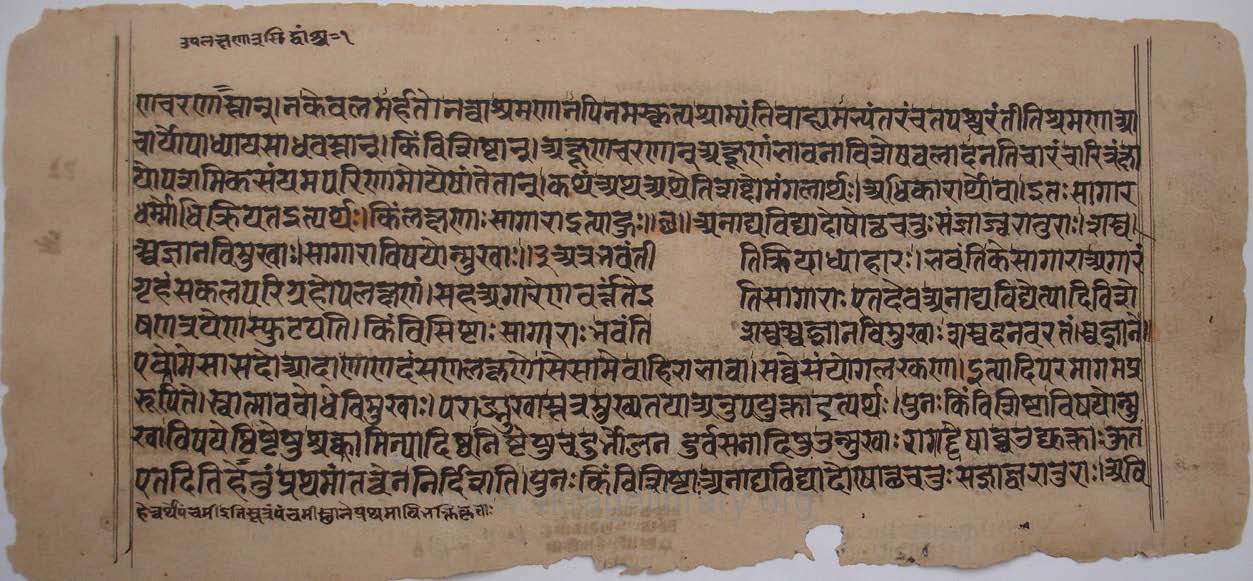 उपलक्षणात् सिद्धांश्च=१
णाचरणांस्तान्।न केवलमर्हतो।नत्वाश्रमणानपिनमस्कृत्यश्राम्यंतिबाह्यमभ्यंतरंचतपश्चरंतीतिश्रमणाआ
चार्योपाध्यायसाधवस्तान्।किंविशिष्टान्।अक्षूणचरणान्अक्षूणंभावनाविशेषबलादनतिचारंचारित्रंक्षा
योपशमिकसंयमपरिणामोयेषांतेतान्।कथंअथअथेतिशब्दोमंगलार्थः।अधिकारार्थोवा।इतःसागार
धर्मोधिक्रियतइत्यर्थः।किंलक्षणाःसागाराइत्याहुः॥छ॥अनाद्यविद्यादोषोत्थचतुःसंज्ञाज्वरातुराः।शश्व
त्स्वज्ञानविमुखाः।सागाराविषयोन्मुखाः।।२अत्रभवंती तिक्रियाध्याहारः।भवंतिकेसागाराअगारं
गृहंसकलपरिग्रहोपलक्षणं।सहअगारेणवर्त्तंतेइ तिसागाराःएतदेवअनाद्यविद्येत्यादिविशे
षणत्रयेणस्फुटयति।किंविसिष्टाःसागाराःभवंति शश्वत्स्वज्ञानविमुखाःशश्वदनवरतं।स्वज्ञाने
एक्कोमेसासदोआदाणाणदंसणलक्खणोसेसामेबाहिराभावा।सव्वेसंयोगलक्खणा।इत्यादिपरमागमप्र
रूपिते।स्वात्मावबोधेविमुखाः।पराङ्मुखास्तत्रमुख्यतयाअनुपयुक्ताइत्यर्थः।पुनःकिंविशिष्टाविषयोन्मु
खाविषयेष्विष्टेषुस्रक्कामिन्यादिष्वनिष्टेषुचदुर्भोजनदुर्वसनादिषुउन्मुखाःरागद्वेषाभ्यांउद्युक्ताःकुत
एतदितिहेतुंप्रथमांतत्वेननिर्दिशति।पुनःकिंविशिष्टाअनाद्यविद्यादोषोत्थचतुःसंज्ञाज्वरातुराः।अवि
हेत्वर्थेपंचमीइतिसूत्रेपंचमीस्थानेप्रथमाविभक्तिःकृताः